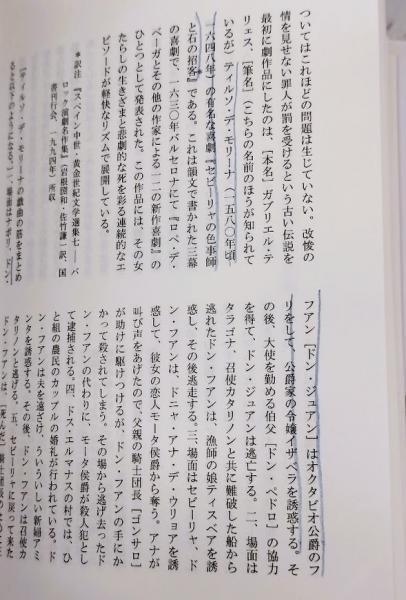 ついてはこれほどの問題は生じていない。改悛の
情を見せない罪人が罰を受けるという古い伝説を
最初に劇作品にしたのは、［本名］ガブリエル・テ
リェス、［筆名］（こちらの名前のほうが知られて
いるが）ティルソ・デ・モリーナ（一五八〇年頃
―一六四八年）の有名な喜劇『セビーリャの色事師
と石の招客』＊である。これは韻文で書かれた三幕
の喜劇で、一六三〇年バルセロナにて『ロペ・デ・
ベーガとその他の作家による一二の新作喜劇』の
ひとつとして発表された。この作品には、その女
たらしの生きざまと悲劇的な死を彩る連続的なエ
ピソードが軽快なリズムで展開している。
＊訳注 『スペイン中世・黄金世紀文学選集七――バ
ロック演劇名作集』（岩根圀和・佐竹謙一訳、国
書刊行会、一九九四年）所収
［ティルソ・デ・モリーナの戯曲の筋をまとめ
ると以下のようになる。一、場面はナポリ、ドン・
フアン［ドン・ジュアン］はオクタビオ公爵のフ
リをして、公爵家の令嬢イザベラを誘惑する。そ
の後、大使を勤める伯父［ドン・ペドロ］の協力
を得て、ドン・ジュアンは逃亡する。二、場面は
タラゴナ、召使カタリノンと共に難破した船から
逃れたドン・フアンは、漁師の娘ティスベアを誘
惑し、その後逃走する。三、場面はセビーリャ、ド
ン・フアンは、ドニャ・アナ・デ・ウリョアを誘
惑して、彼女の恋人モータ侯爵から奪う。アナが
叫び声をあげたので、父親の騎士団長［ゴンサロ］
が助けに駆けつけるが、ドン・フアンの手にか
かって殺されてしまう。その場から逃げ去ったド
ン・フアンの代わりに、モータ侯爵が殺人犯とし
て逮捕される。四、ドス・エルマナスの村では、ひ
と組の農民のカップルの婚礼が行われている。ド
ン・フアンは夫を遠ざけ、ういういしい新婦アミ
ンタを誘惑する。その後、ドン・フアンは召使カ
タリノンと逃げる。五、セビーリャに戻って来た
ドン・フアンは、［死んだ］騎士団長の